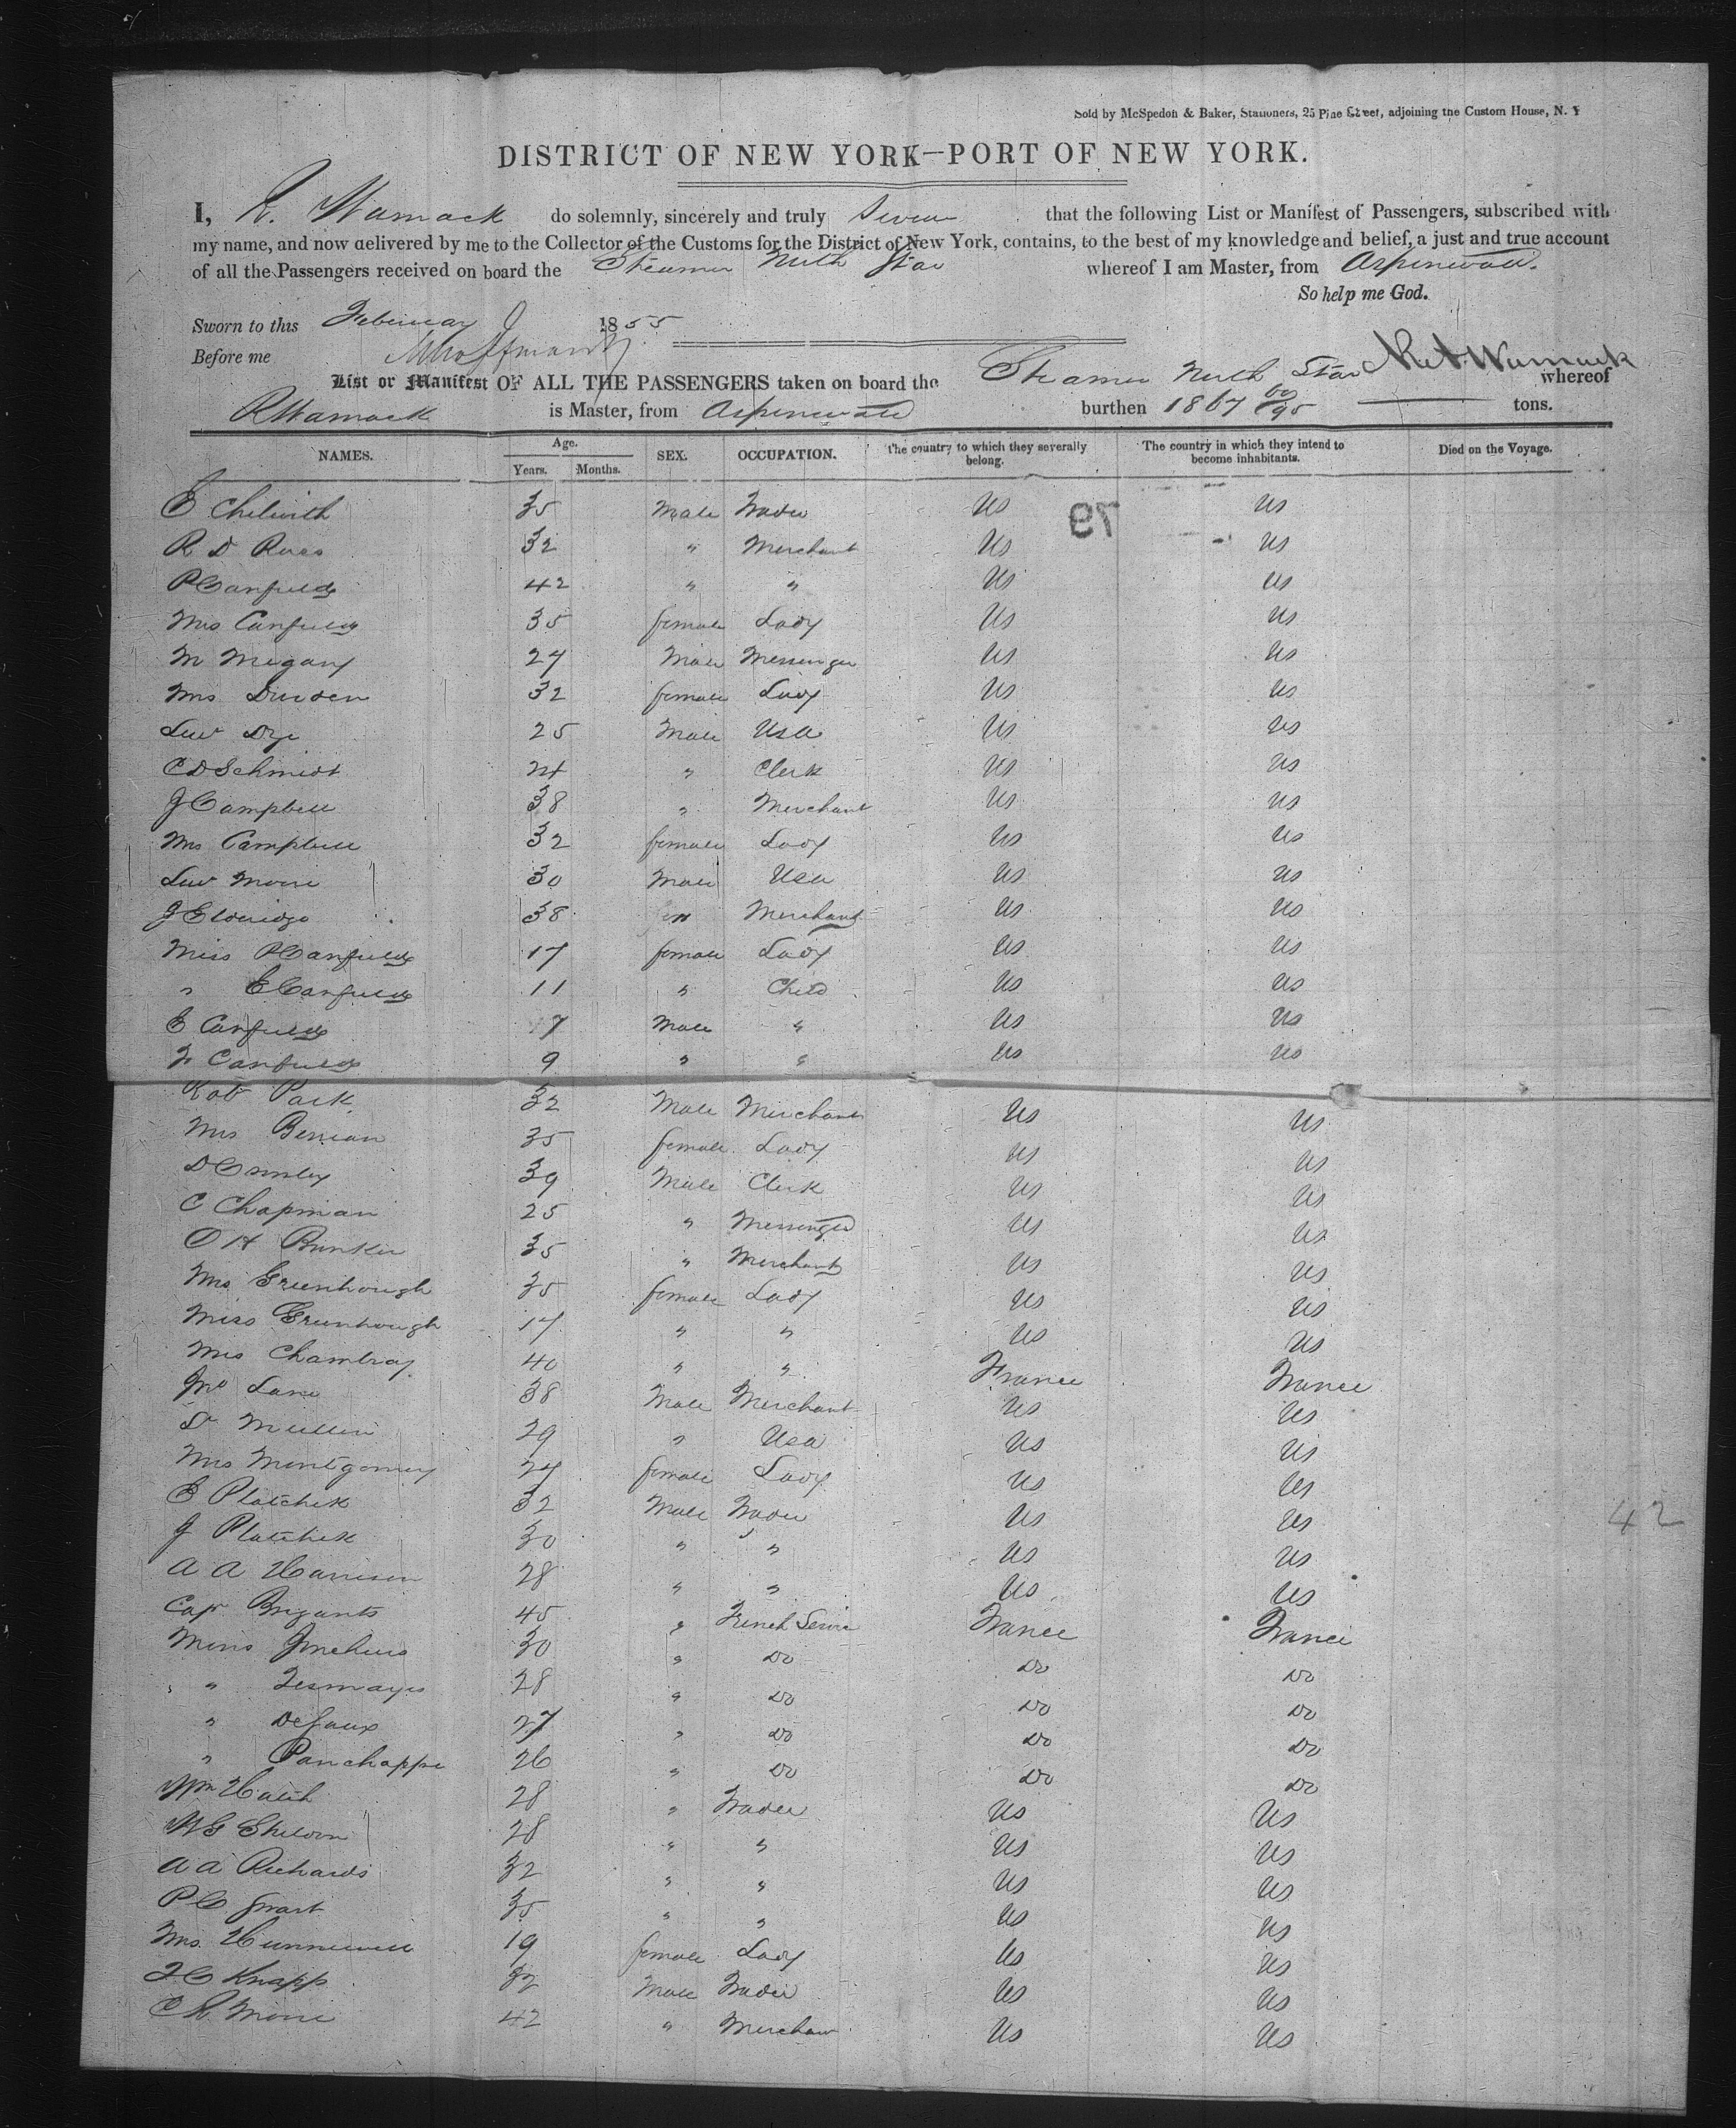 Sold by McSpedon & Baker, Stationers, 25 Pine Street, adjoining the Custom House, N. Y
DISTRICT OF NEW YORK—PORT OF NEW YORK.
I, R. Warnack do solemnly, sincerely and truly Swear that the following List or Manifest of Passengers, subscribed with
my name, and now delivered by me to the Collector of the Customs for the District of New York, contains, to the best of my knowledge and belief, a just and true account
of all the Passengers received on board the Steamer North Star whereof I am Master, from Aspinwall.
So help me God.
Sworn to this February 9 1855
Before me
List or Manifest OF ALL THE PASSENGERS taken on board the Steamer North Star whereof
R Warnack is Master, from Aspinwall burthen 1867 60/95 tons.
NAMES. Age. Years. Months. SEX. OCCUPATION. The country to which they severally belong. The country in which they intend to become inhabitants. Died on the Voyage.
E 35 Male Trader Us Us
79
R D 32 " Merchant Us Us
P Canfield 42 " " Us Us
Mrs Canfield 35 female Lady Us Us
M Megany 27 Male Messenger Us Us
Mrs Durden 32 female Lady Us Us
Lieu Dye 25 Male Usa Us Us
C D Schmidt 24 " Clerk Us Us
J Campbell 38 " Merchant Us Us
Mrs Campbell 32 female Lady Us Us
Lieu 30 Male Usa Us Us
J Eldridge 38 " Merchant Us Us
Miss P Canfield 17 female Lady Us Us
" E Canfield 11 " Child Us Us
E Canfield 7 Male " Us Us
F Canfield 9 " " Us Us
Rob Park 32 Male Merchant Us Us
Mrs Benian 35 female Lady Us Us
D 39 Male Clerk Us Us
C Chapman 25 " Messenger Us Us
O H Bunker 35 " Merchant Us Us
Mrs Greenhough 35 female Lady Us Us
Miss Greenhough 17 " " Us Us
Mrs Chambray 40 " " France France
Jno Lane 38 Male Merchant Us Us
Dr 29 " Usa Us Us
Mrs Montgomery 27 female Lady Us Us
E Platchek 32 Male Trader Us Us
42
J Platchek 30 " " Us Us
A A Harrison 28 " " Us Us
Cap Brigants 45 " French Service France France
Mons 30 " Do Do Do
" 28 " Do Do Do
" Defaux 27 " Do Do Do
" Panchappe 26 " Do Do Do
Wm Hatch 28 " Trader Us Us
W G Sheldon 28 " " Us Us
A A Richards 32 " " Us Us
P C Grant 35 " " Us Us
Mrs Hunnewell 19 female Lady Us Us
T C Knapp 32 Male Trader Us Us
C R 42 " Merchant Us Us